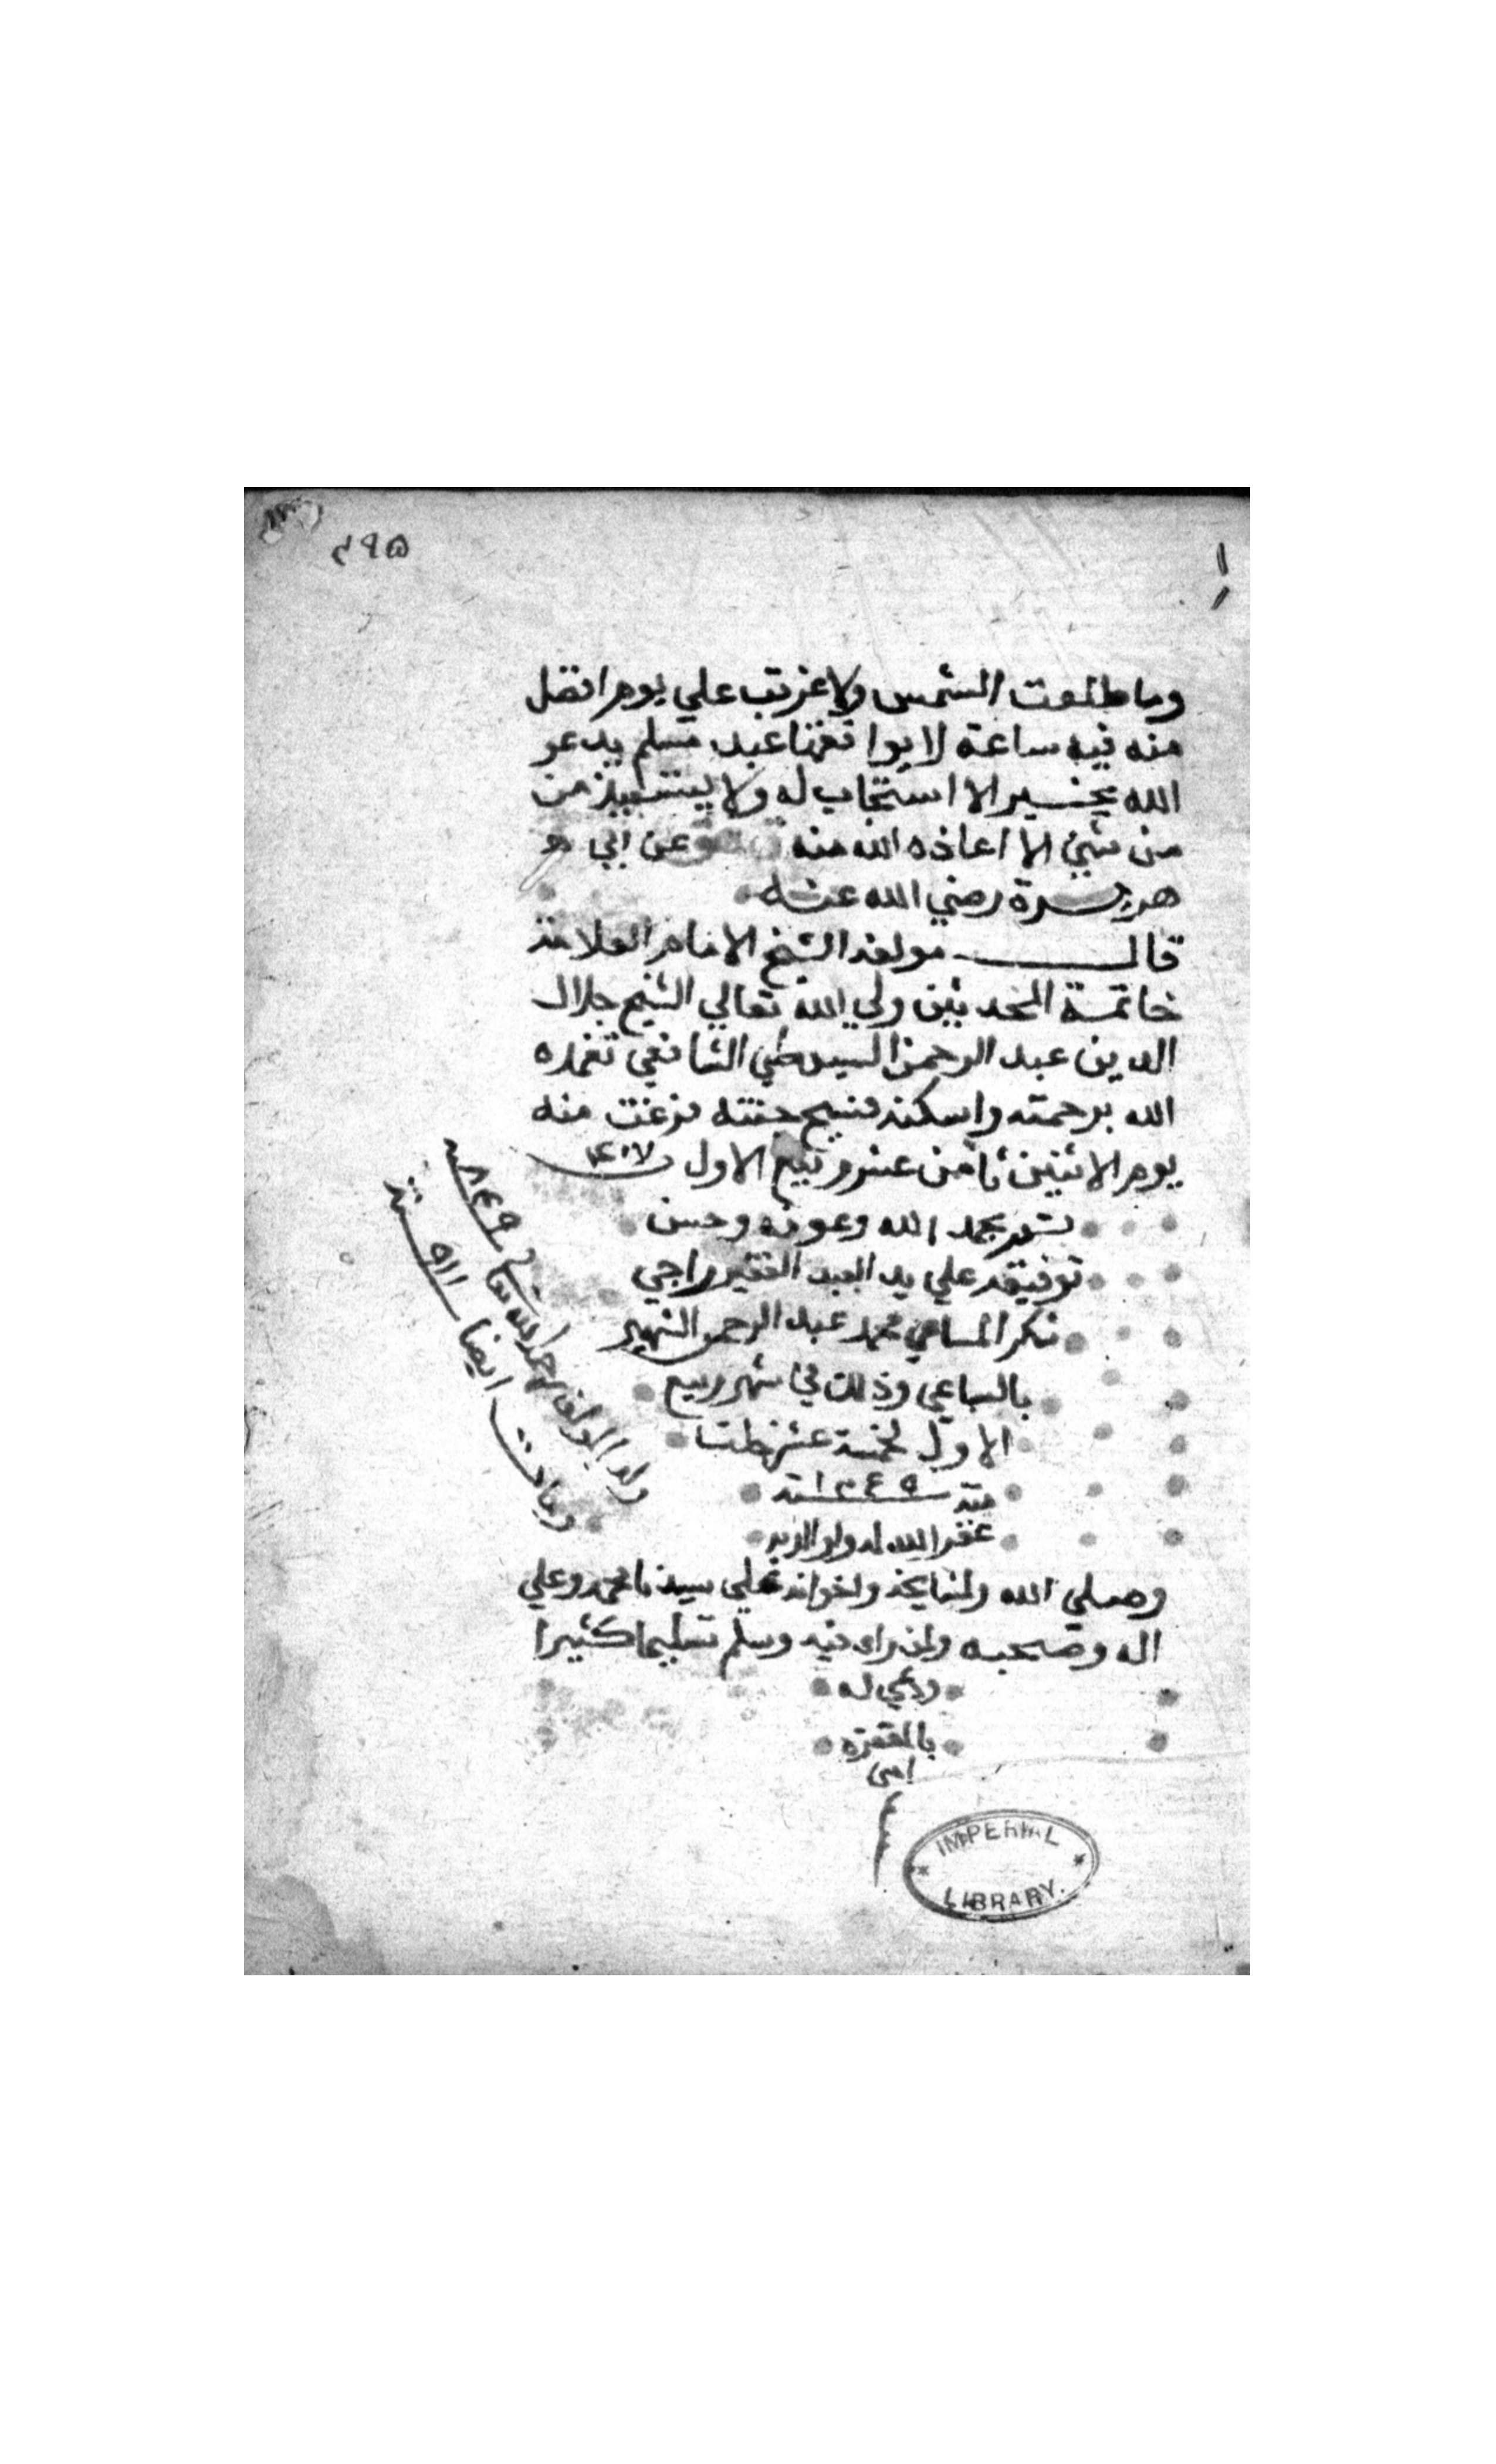 ٤٩٥
وما طلعت الشمس ولا غربت علي يوم افضل
منه فيه ساعة لا يوافقها عبد مسلم يدعو
الله بخير الا استجاب له ولا يستعيذ من
من شيئ الا اعاذه الله منه عن ابي هو
هريرة رضي الله عنه
قال مولفه الشيخ الامام العلامة
خاتمة المحدثين ولي الله تعالي الشيخ جلال
الدين عبد الرحمن السيوطي الشافعي تغمده
الله برحمته واسكنه فسيح جنته فرغت منه
يوم الاثنين ثامن عشر ربيع الاول
بحمد الله وعونه وحسن
توفيقه علي يد العبد الفقير راجي
المساعي محمد عبد الرحمن الشهير
بالساعي وذلك في شهر ربيع
الاول لخمسة عشر خلت
منه ١٢٤٥ سنة
غفر الله له ولوالديه
وصلي الله ولمشايخه واخوانه علي سيدنا محمد وعلي
اله وصحبه ولمن راي فيه وسلم تسليما كثيرا
ودعي له
بالمغفرة
امين
ولد المولف رحمه الله تعالي ٨٤٩
ومات ايضا ٩١١ سنة
IMPERIAL
LIBRARY